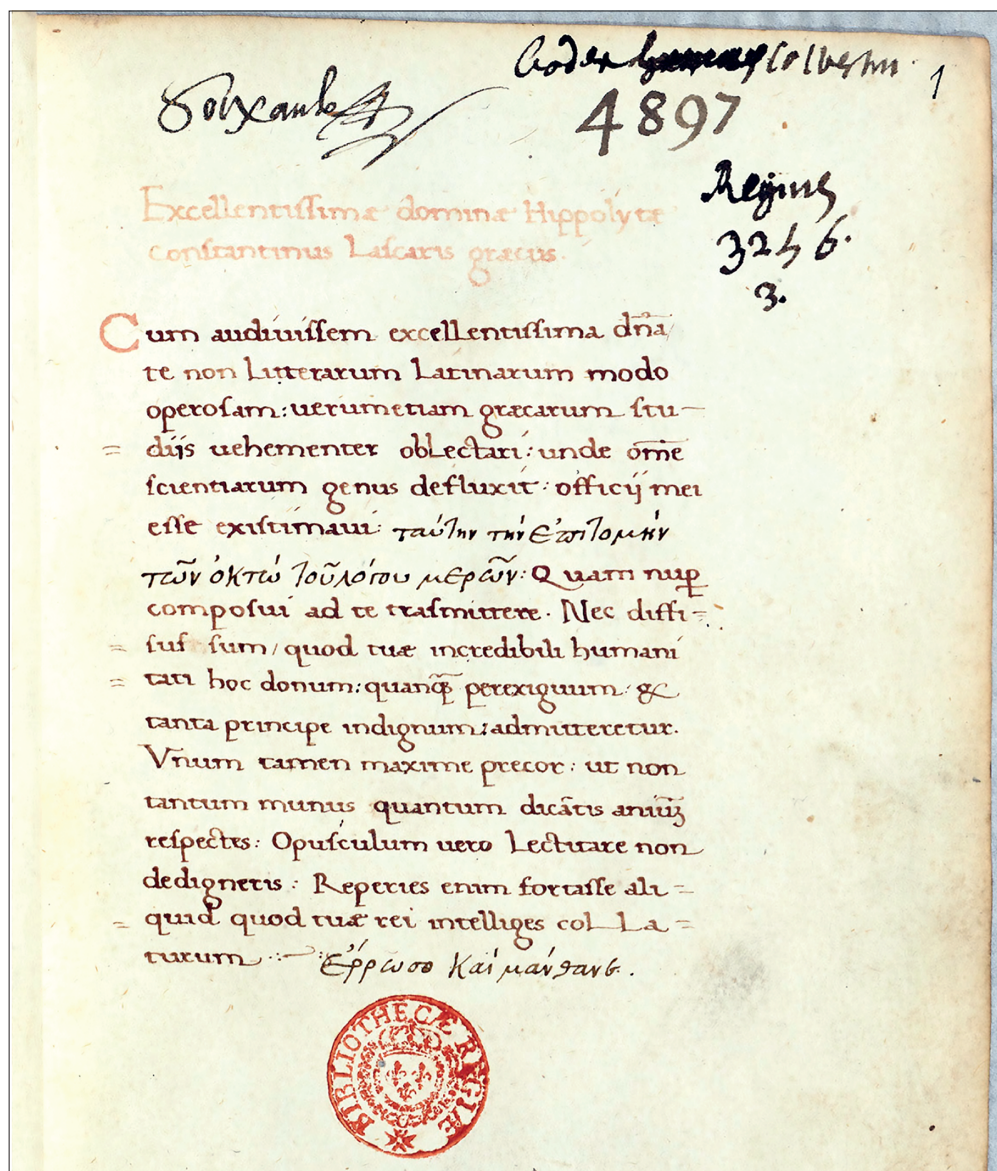 Codex Colbertin.
1
4897
Regius
3246.
3.
Excellentissimæ dominæ Hippolytæ
constantinus Lascaris græcus.
Cum audiuissem excellentissima dña
te non litterarum latinarum modo
operosam: uerumetiam græcarum stu-
diis uehementer oblectari: unde om̄e
scientiarum genus defluxit: officij mei
esse existimaui: ταύτην τὴν ἐπιτομὴν
τῶν ὀκτὼ τοῦ λόγου μερῶν: Quam nuꝑ
composui ad te trasmittere. Nec diffi=
= sus sum / quod tuæ incredibili humani
= tati hoc donum: quanꝙ̃ perexiguum: &
tanta principe indignum: admitteretur.
Vnum tamen maxime precor: ut non
tantum munus quantum dicãtis aniũꝫ
respectes: Opusculum uero lectitare non
dedigneris: Reperies enim fortasse ali=
= quid quod tuæ rei intelliges colla=
turum ἔρρωσο καὶ μάνθανε.
BIBLIOTHECÆ REGIÆ